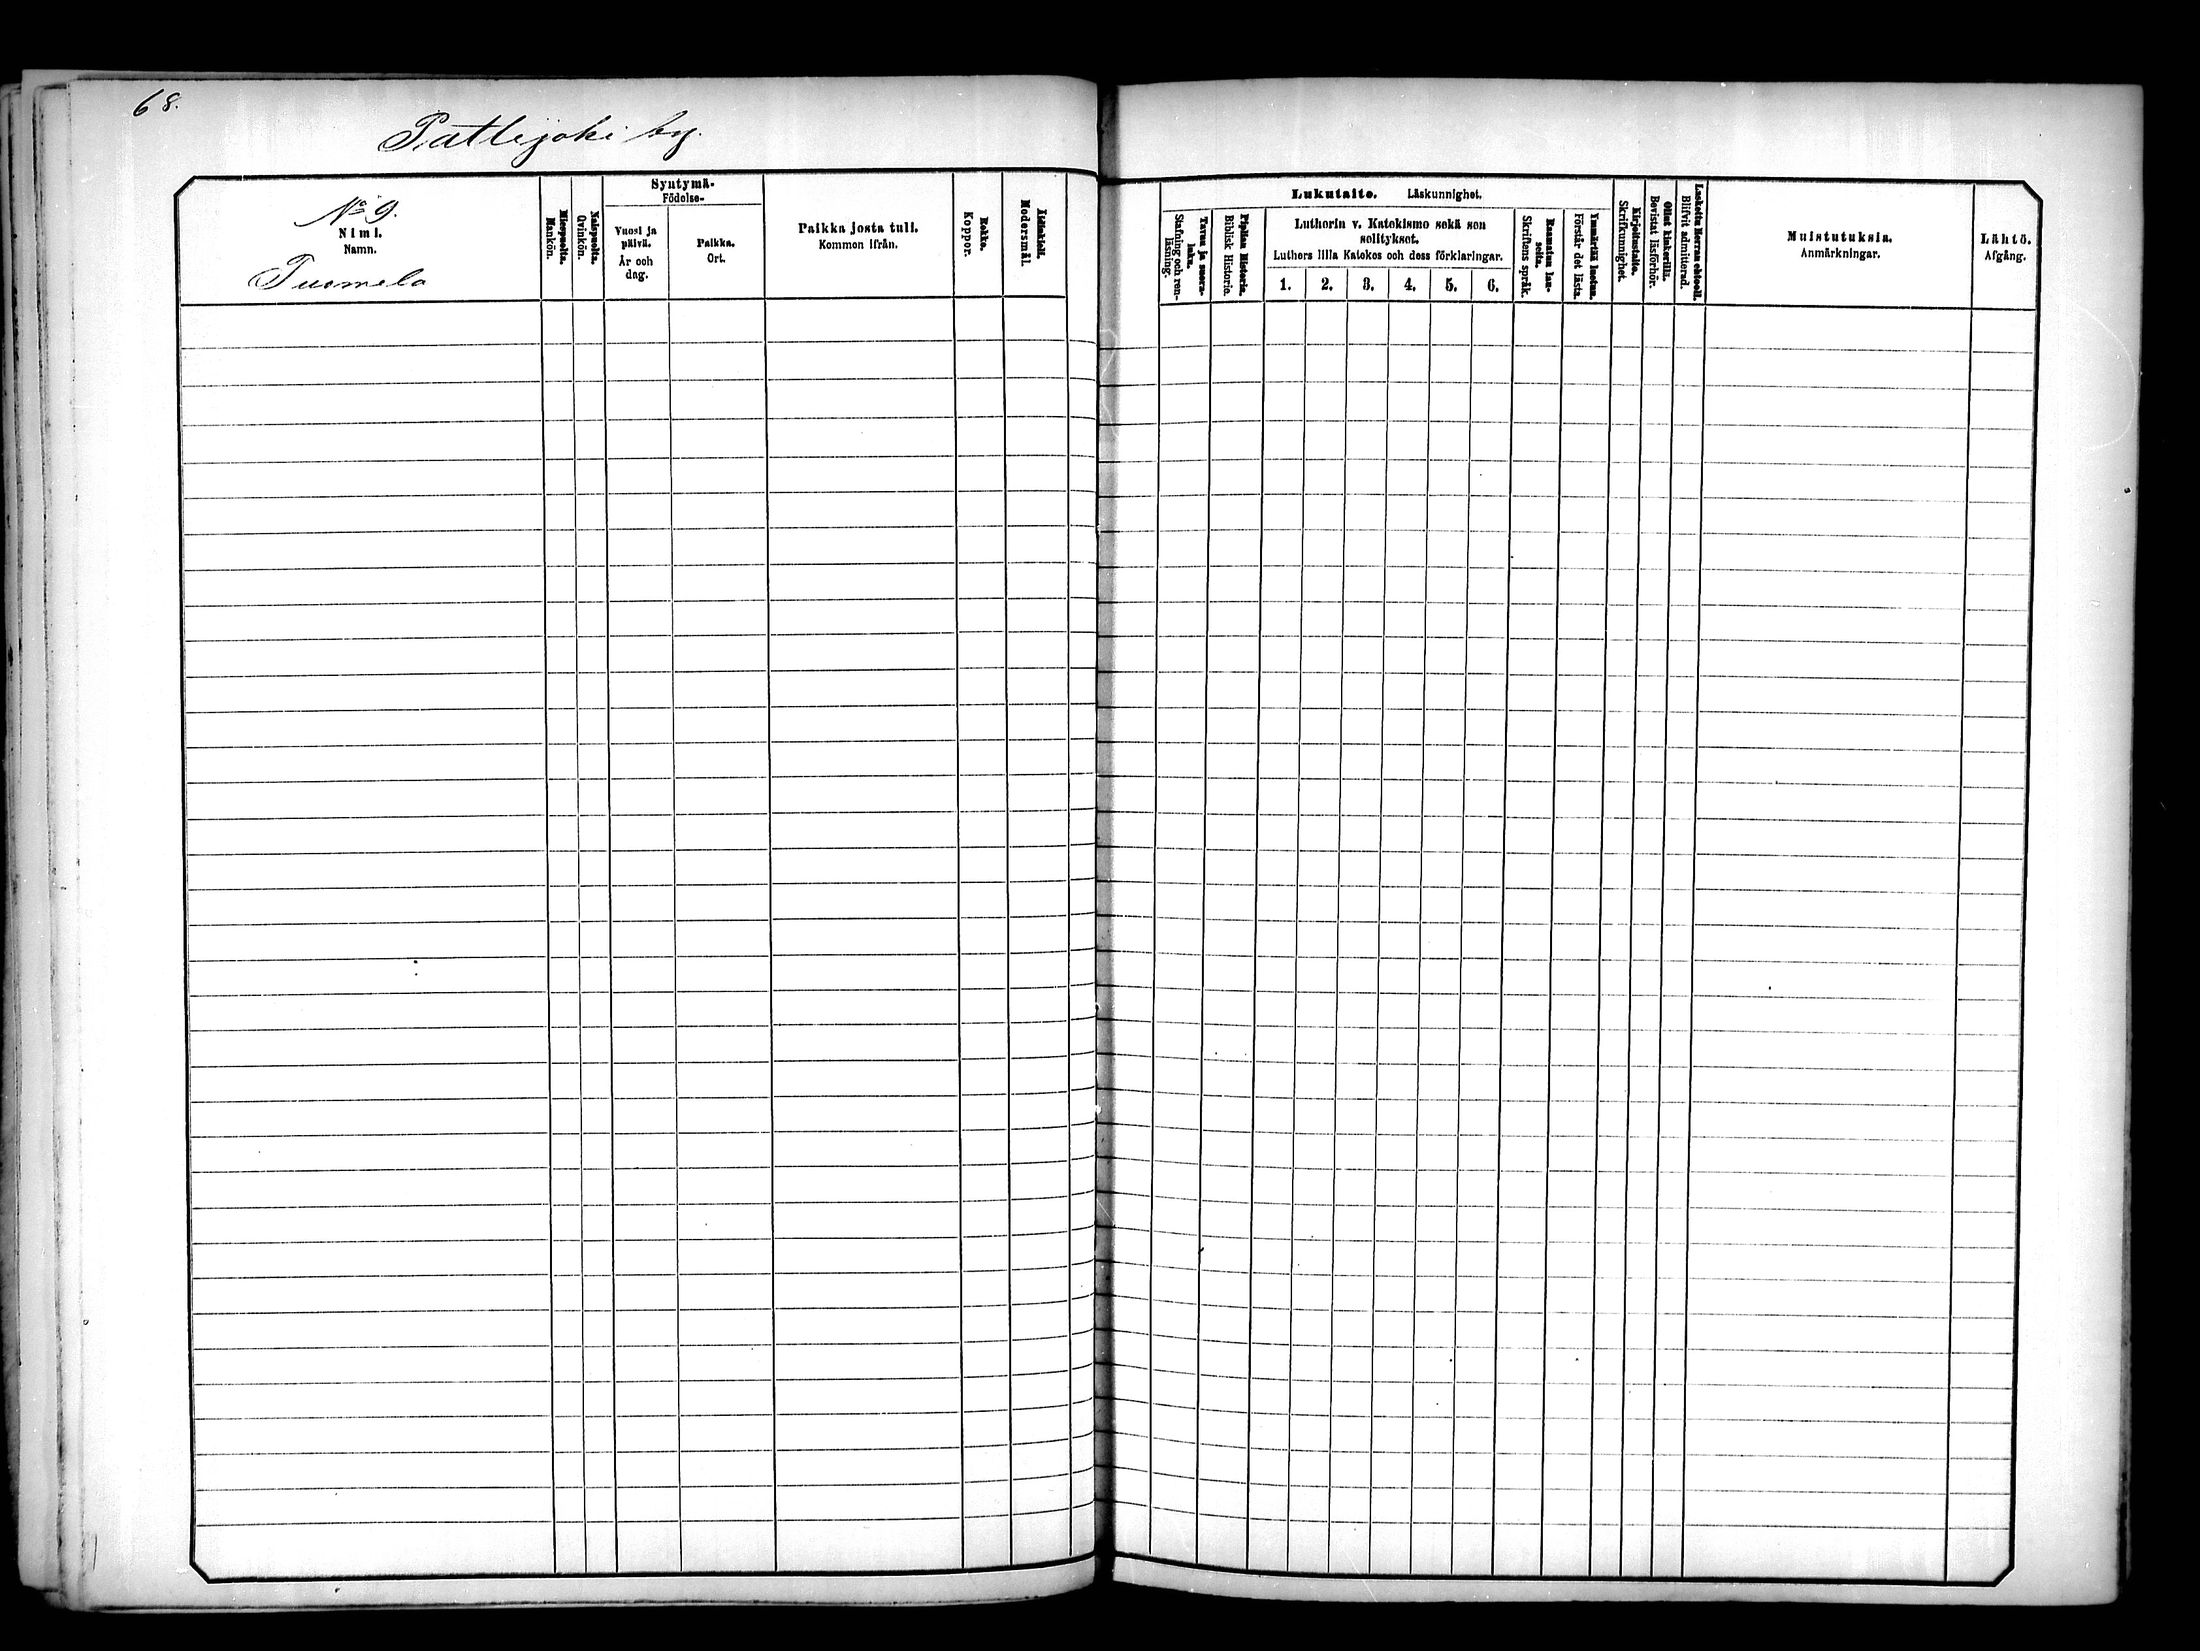 68.
Pattijoki by.
No 9.
Nimi.
Namn.
Tuomela
Miespuolia.
Mankön.
Naispuolia.
Qvinkön.
Syntymä-
Födelse-
Vuosi ja
päivä.
År och
dag.
Paikka.
Ort.
Paikka josta tuli.
Kommen ifrån.
Rokko.
Koppor.
Äidinkieli.
Modersmål.
Lukutaito. Läskunnighet.
Tavuu ja suora-
luku.
Stafning och ren-
läsning.
Piplian Historia.
Biblisk Historie.
Lutherin v. Katekismo sekä sen
selitykset.
Luthers lilla Katekes och dess förklaringar.
1. 2. 3. 4. 5. 6.
Raamatun lau-
seita.
Skriftens språk.
Ymmärtää luetun.
Förstår det lästa.
Kirjoitustaito.
Skrifkunnighet.
Ollut kinkerillä.
Bevistat läsförhör.
Laskettu Herran ehtool.
Blifvit admitterad.
Muistutuksia.
Anmärkningar.
Lähtö.
Afgång.